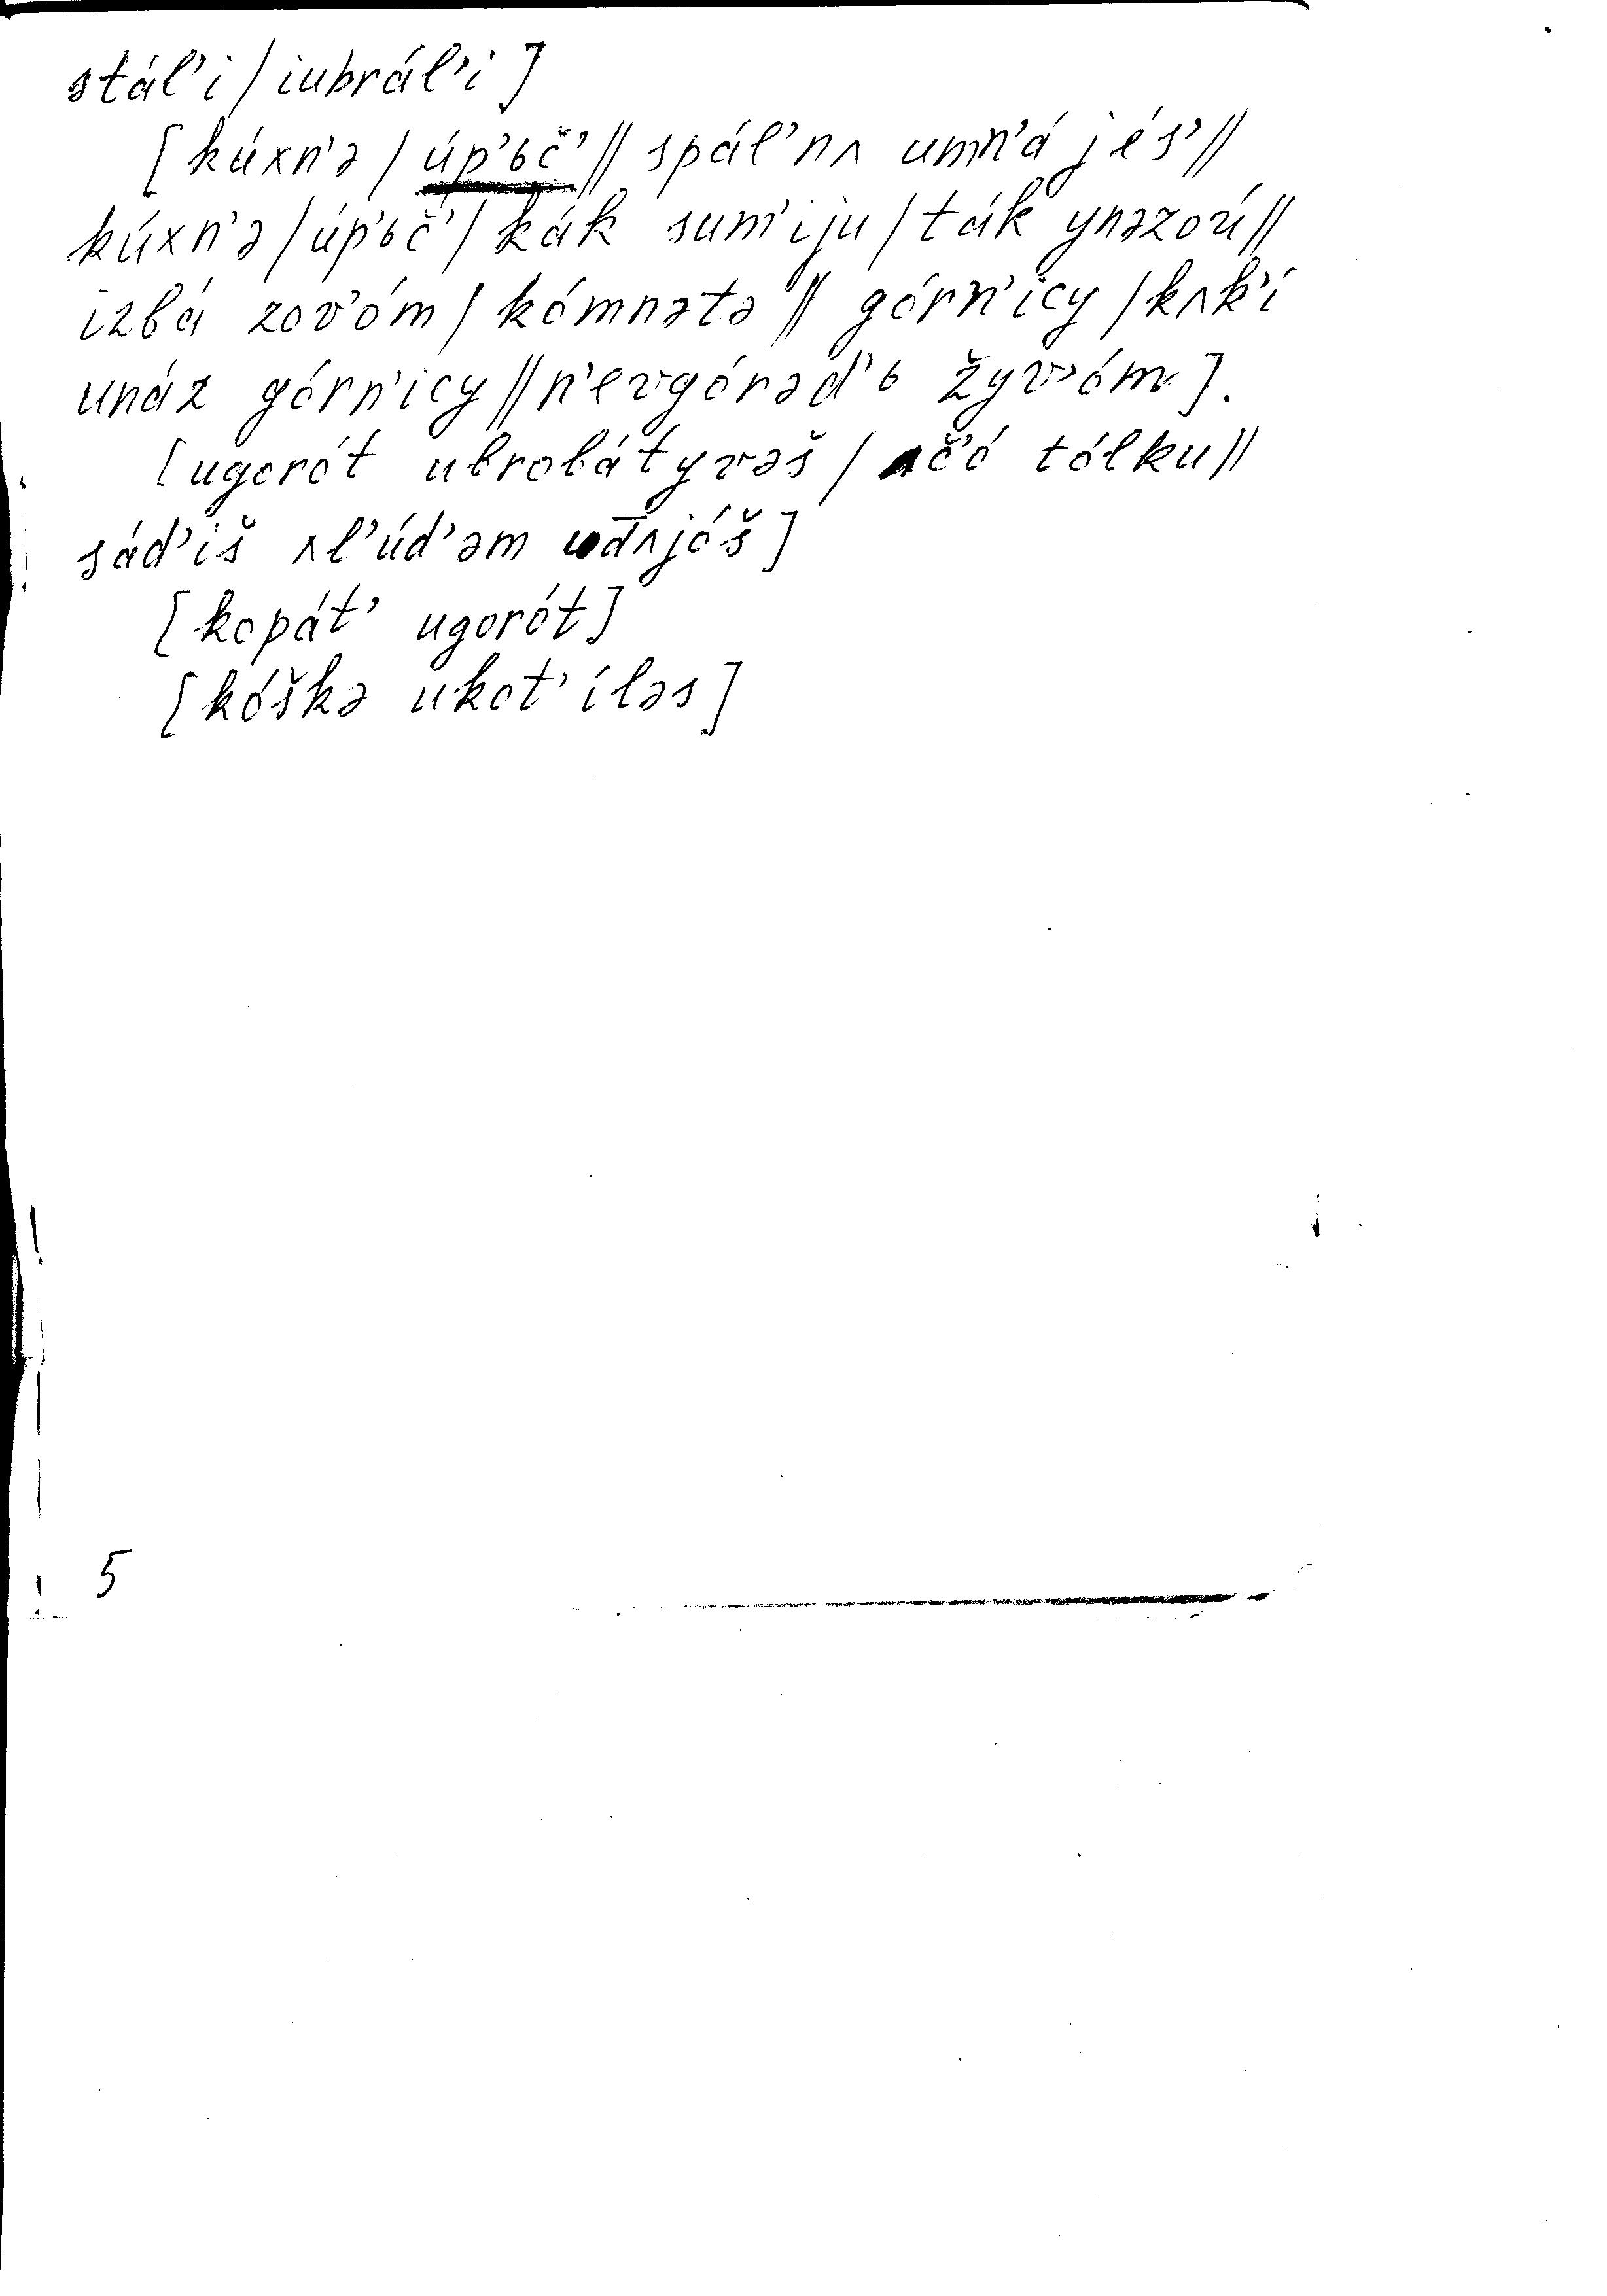 stál’i / iubrál’i ]
[ kúxn’ə / úp’ьč’ // spál’nʌ umn’á jés’ //
kúxn’ə / úp’ьč’ / kák sum’iju / ták ynəzoú //
izbá zov’óm / kómnətə // górn’icy / kʌk’í
unáz górn’icy // n’evgórəd’ь žyv’óm ].
[ ugorót ubrobátyvəš / ʌč’ó tólku //
sád’iš ʌl’úd’əm od̅ʌjóš ]
[ kopát’ ugorót ]
[ kóškə ukot’íləs ]
5